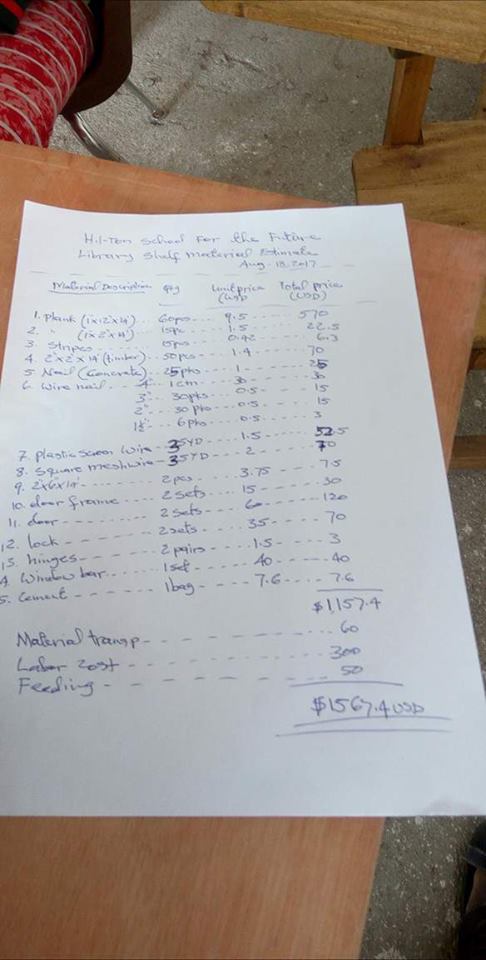 Hil-Ton School For the Future
Library Shelf Material Estimate
Aug. 18. 2017
Material Description Qty Unit price (USD) Total price (USD)
1. Plank (1x12x14') 60pcs 9.5 570
2. " (1x2x14') 15pc 1.5 22.5
3. Stripes 15pcs 0.42 6.3
4. 2"x2"x14' (timber) 50pcs 1.4 70
5. Nail (Concrete) 25pkts 1 25
6. Wire nail 4" 1cm 30 30
3" 30pkts 0.5 15
2" 30pkts 0.5 15
1½" 6pkts 0.5 3
7. plastic screen wire 35YD 1.5 52.5
8. Square meshwire 35YD 2 70
9. 2"x6"x14' 2pcs 3.75 7.5
10. door frame 2sets 15 30
11. door 2sets 60 120
12. lock 2sets 35 70
13. hinges 2pairs 1.5 3
4. Window bar 1set 40 40
5. Cement 1bag 7.6 7.6
$1,157.4
Material transp 60
Labor Cost 300
Feeding 50
$1567.4 USD